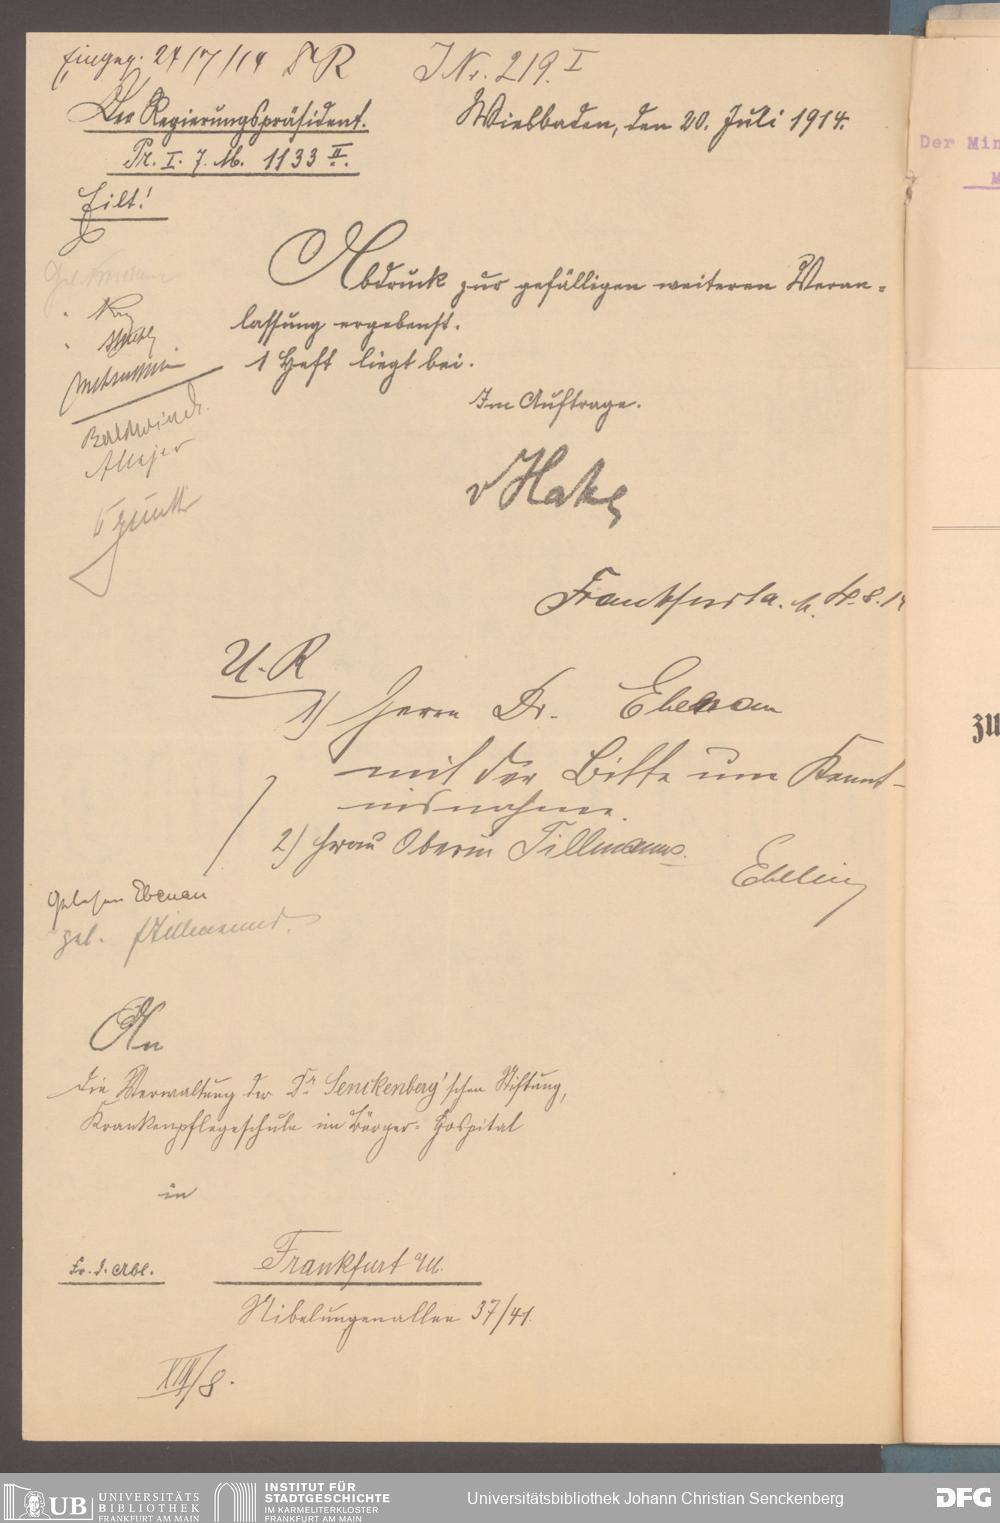 Eingeg. 24/7/14 Dr R
J Nr. 219. I
Der Regierungspräsident.
Wiesbaden, den 20. Juli 1914.
Pr. I. 7. M. 1133 II.
Eilt!
Abdruck zur gefälligen weiteren Veran-
lassung ergebenst.
1 Heft liegt bei.
Im Auftrage.
v Hake
Frankfurt a. M. 4.8.14
U. R
1) Herrn Dr. Ebenau
mit der Bitte um Kennt-
nisnahme.
2) Frau Oberin Tillmanns.
Ebeling
Gelesen Ebenau
gel. Tillmanns.
An
die Verwaltung der Dr. Senckenberg'schen Stiftung,
Krankenpflegeschule im Bürger-Hospital
in
Frankfurt a/M.
Nibelungenallee 37/41.
XIII/8.
Der Min
M
zu
UB UNIVERSITÄTS
BIBLIOTHEK
FRANKFURT AM MAIN
INSTITUT FÜR
STADTGESCHICHTE
IM KARMELITERKLOSTER
FRANKFURT AM MAIN
Universitätsbibliothek Johann Christian Senckenberg
DFG